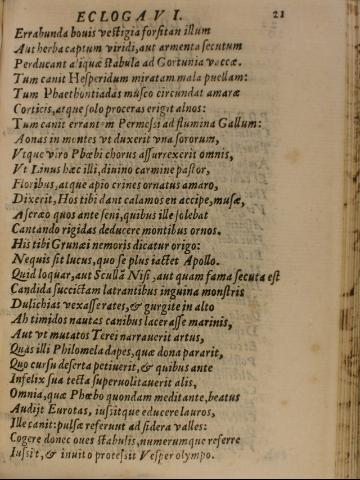 ECLOGA VI. 21
Errabunda bouis vestigia forsitan illum
Aut herba captum viridi, aut armenta secutum
Perducant aliquæ stabula ad Gortunia vaccæ.
Tum canit Hesperidum miratam mala puellam:
Tum Phaethontiadas musco circundat amaræ
Corticis, atque solo proceras erigit alnos:
Tum canit errantem Permessi ad flumina Gallum:
Aonas in montes vt duxerit vna sororum,
Vtque viro Phœbi chorus assurrexerit omnis,
Vt Linus hæc illi, diuino carmine pastor,
Floribus, atque apio crines ornatus amaro,
Dixerit, Hos tibi dant calamos en accipe, musæ,
Ascræo quos ante seni, quibus ille solebat
Cantando rigidas deducere montibus ornos.
His tibi Grunæi nemoris dicatur origo:
Nequis sit lucus, quo se plus iactet Apollo.
Quid loquar, aut Scullā Nisi, aut quam fama secuta est
Candida succictam latrantibus inguina monstris
Dulichias vexasse rates, & gurgite in alto
Ah timidos nautas canibus lacerasse marinis,
Aut vt mutatos Terei narrauerit artus,
Quas illi Philomela dapes, quæ dona pararit,
Quo cursu deserta petiuerit, & quibus ante
Infelix sua tecta superuolitauerit alis,
Omnia, quæ Phœbo quondam meditante, beatus
Audijt Eurotas, iussitque educere lauros,
Ille canit: pulsæ referunt ad sidera valles:
Cogere donec oues stabulis, numerumque referre
Iussit, & inuito processit Vesper olympo.